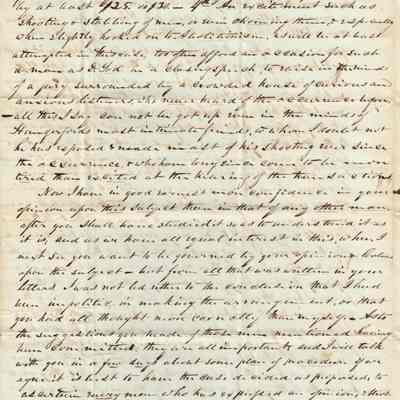 by at least $25. to $30 — 4th An excitement such as
shooting & stabbing of men, or even choosing them, & especially
when slightly hooked on to Abolitionism, would be at least
attempted in this case, too often afford an occasion for such
a man as to God in a closing speech to raise in the minds
of a jury surrounded by a crowded house of curious and
anxious listeners, who never heard of the occurrence before
all this I say can not be got up even in the minds of
Hungerfords most intimate friends, to whom I doubt not
he has reposed & made most of his shooting ever since
the occurrence & whom long since come to be more
tired than excited at the hearing of the transactions
Now I have in good earnest more confidence in your
opinion upon this subject than in that of any other man
after you shall have studied it so as to understand it as
it is, and as we have all equal interest in this, when I
met you you want to be governed by your opinion &
upon the subject — but from all that was written in your
letters I was not led either to the conclusion that I had
been impolitic in making the arrangement, or that
you had all thought more casually than myself — As to
the suggestions you made of those men mentioned having
been committed they are all important and I will talk
with you in a few days about some plan of procedure if we
agree it is best to have the case decided as proposed, to
ascertain every man who has expressed an opinion, & that